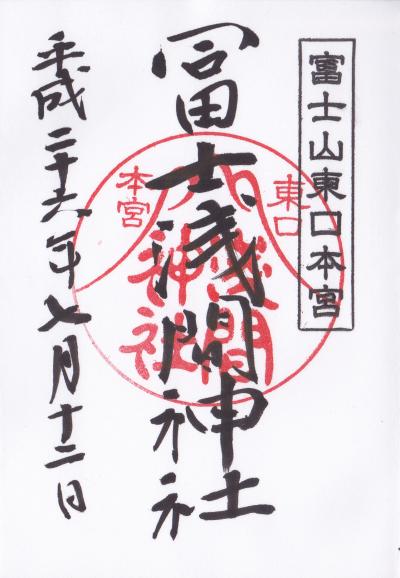 富士山東口本宮
冨士浅間神社
平成二十六年七月十二日
東口
本宮
淺間
神社